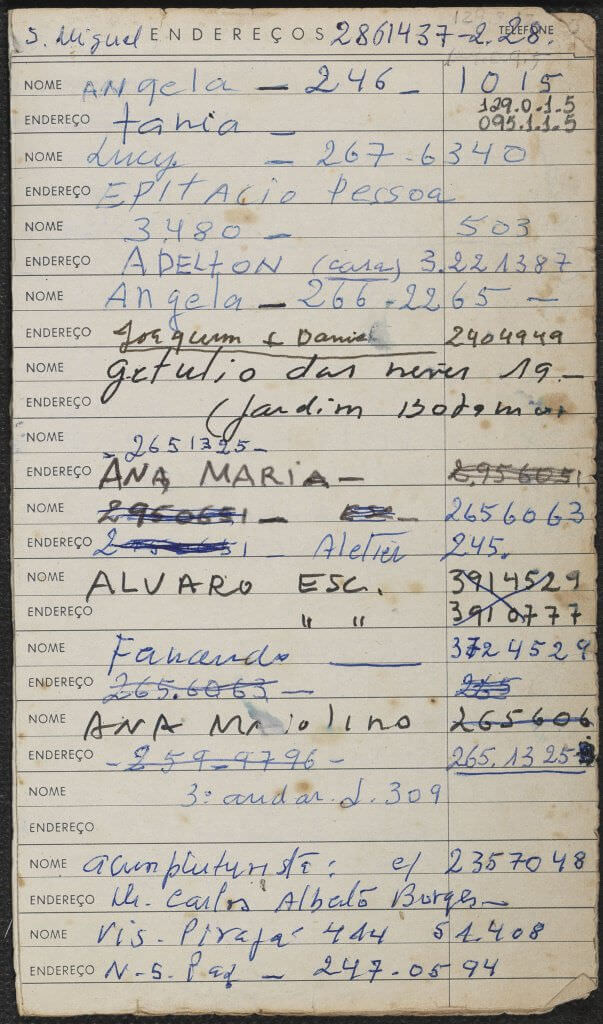 S. Miguel ENDEREÇOS 2861437-2.28. TELEFONE
NOME Angela — 246 - 1015
129.0.1.5
ENDEREÇO tania —
095.1.1.5
NOME Lucy — 267-6340
ENDEREÇO EPITACIO Pessoa
NOME 3.480 — 503
ENDEREÇO ADELTON (casa) 3.221387
NOME Angela — 266-2265 —
ENDEREÇO Joaquim & Daniel 2404949
NOME getulio das neves 19.—
ENDEREÇO (Jardim
NOME
- 2651325-
ENDEREÇO ANA MARIA — 2.956051
NOME 2950651 — 2656063
ENDEREÇO — 245.
NOME ALVARO ESC. 3914529
ENDEREÇO " " 3910777
NOME Fernando — 3724529
ENDEREÇO 265.6063 — 265
NOME ANA Maiolino 265606
ENDEREÇO - 259-9796 - 265.1325
NOME 3º andar. S. 309
ENDEREÇO
NOME acunpunturista: c/ 2357048
ENDEREÇO Dr. Carlos Alberto Borges —
NOME Vis. Pirajá 414 S1.408
ENDEREÇO N.S. Paz — 247-0594